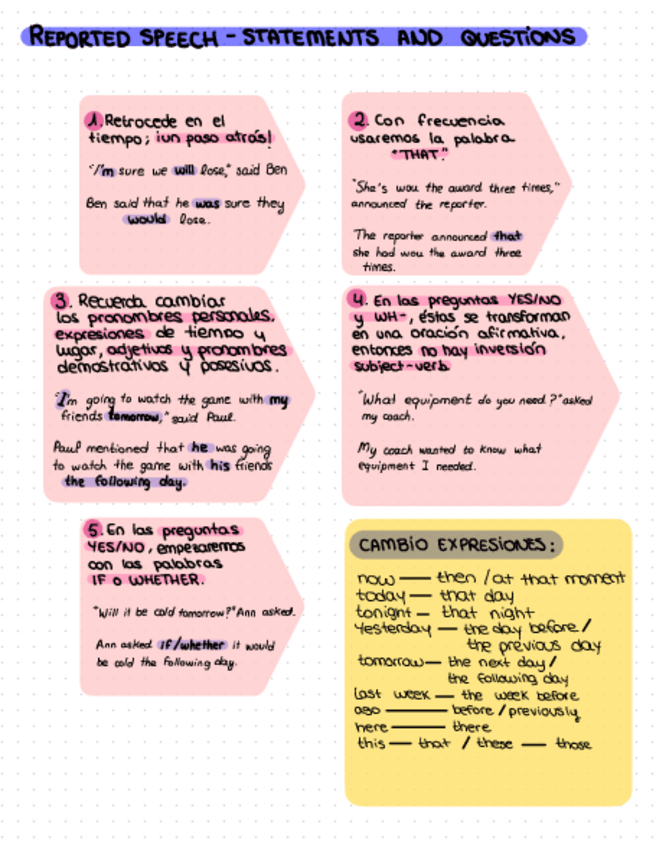 REPORTED SPEECH - STATEMENTS AND QUESTIONS
1. Retrocede en el
tiempo; ¡un paso atrás!
"I'm sure we will lose," said Ben
Ben said that he was sure they
would lose.
2. Con frecuencia
usaremos la palabra
"THAT."
"She's wou the award three times,"
announced the reporter.
The reporter announced that
she had wou the award three
times.
3. Recuerda cambiar
los pronombres personales,
expresiones de tiempo y
lugar, adjetivos y pronombres
demostrativos y posesivos.
"I'm going to watch the game with my
friends tomorrow," said Paul.
Paul mentioned that he was going
to watch the game with his friends
the following day.
4. En las preguntas YES/NO
y WH-, éstas se transforman
en una oración afirmativa,
entonces no hay inversión
subject-verb.
"What equipment do you need?" asked
my coach.
My coach wanted to know what
equipment I needed.
5. En las preguntas
YES/NO, empezaremos
con las palabras
IF o WHETHER.
"Will it be cold tomorrow?" Ann asked.
Ann asked if/whether it would
be cold the following day.
CAMBIO EXPRESIONES:
now — then / at that moment
today — that day
tonight — that night
yesterday — the day before /
the previous day
tomorrow — the next day /
the following day
last week — the week before
ago — before / previously
here — there
this — that / these — those